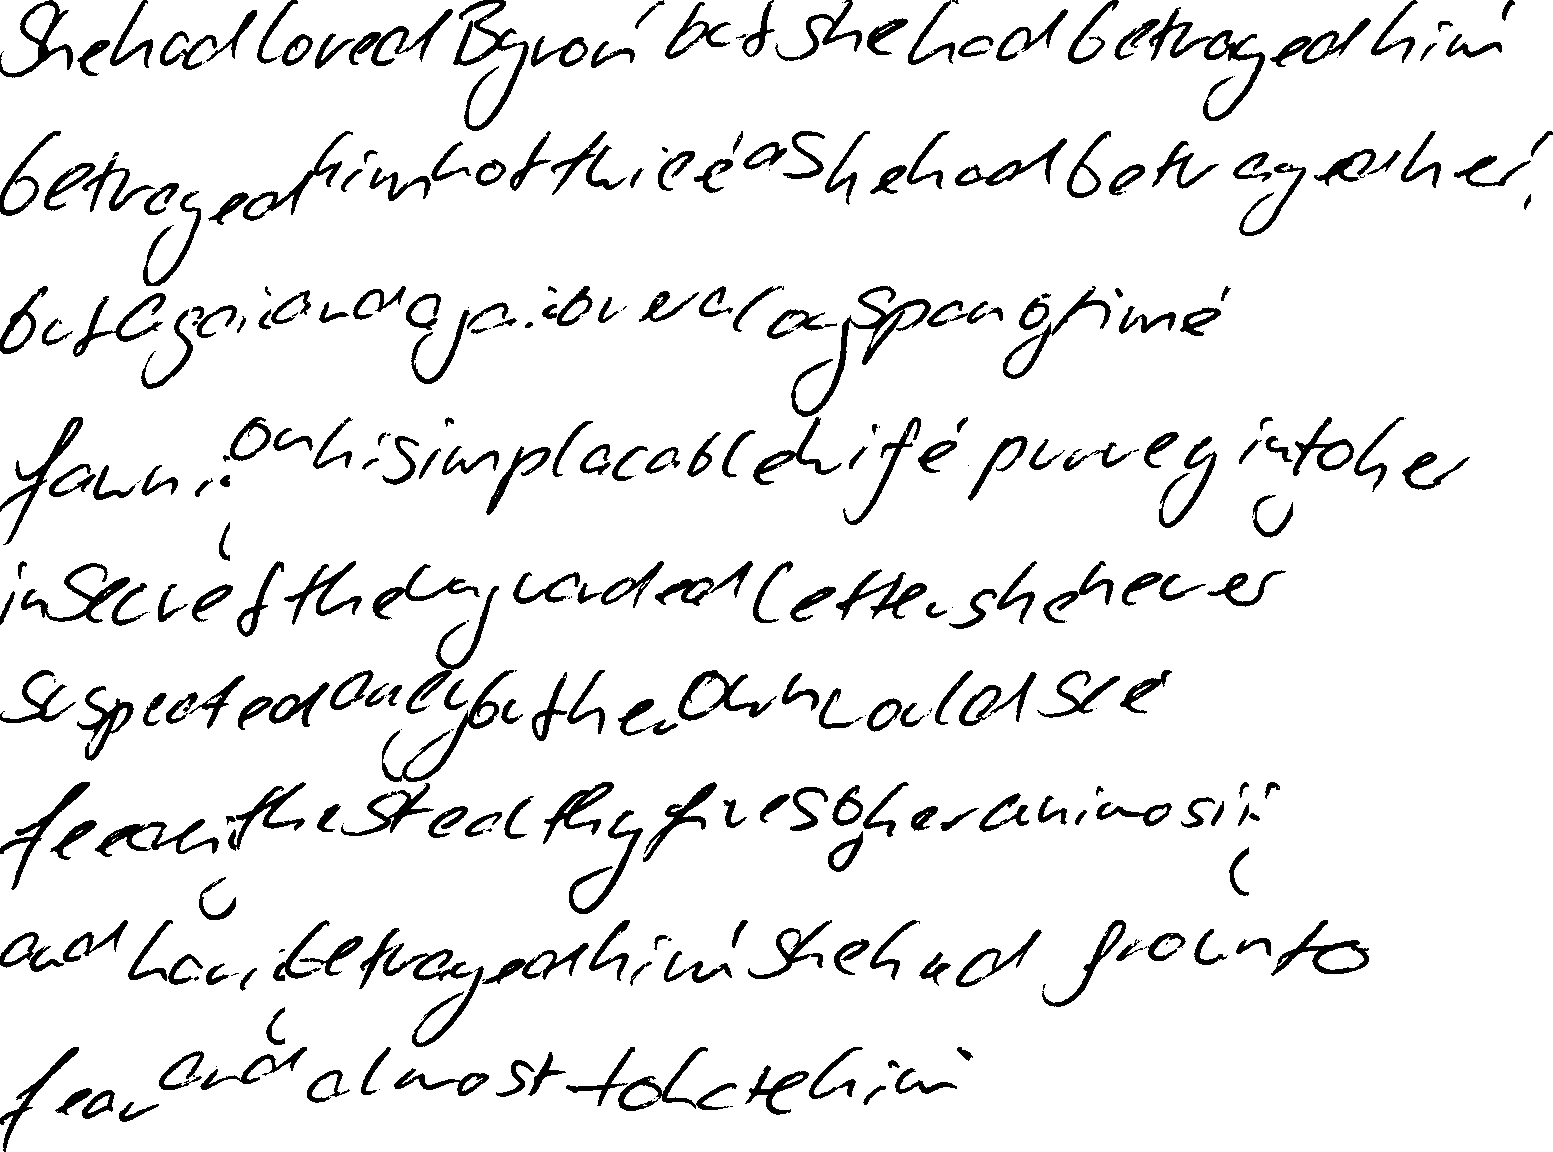 She had loved Byron but she had betrayed him
betrayed him not twice as he had betrayed her,
but again and again over a long span of time
fawning on his implacable wife purveying to her
in secret the unguarded letters he never
suspected any but her own would see
feeding the steady fires of her animosity
and having betrayed him she had grown to
fear and almost to hate him